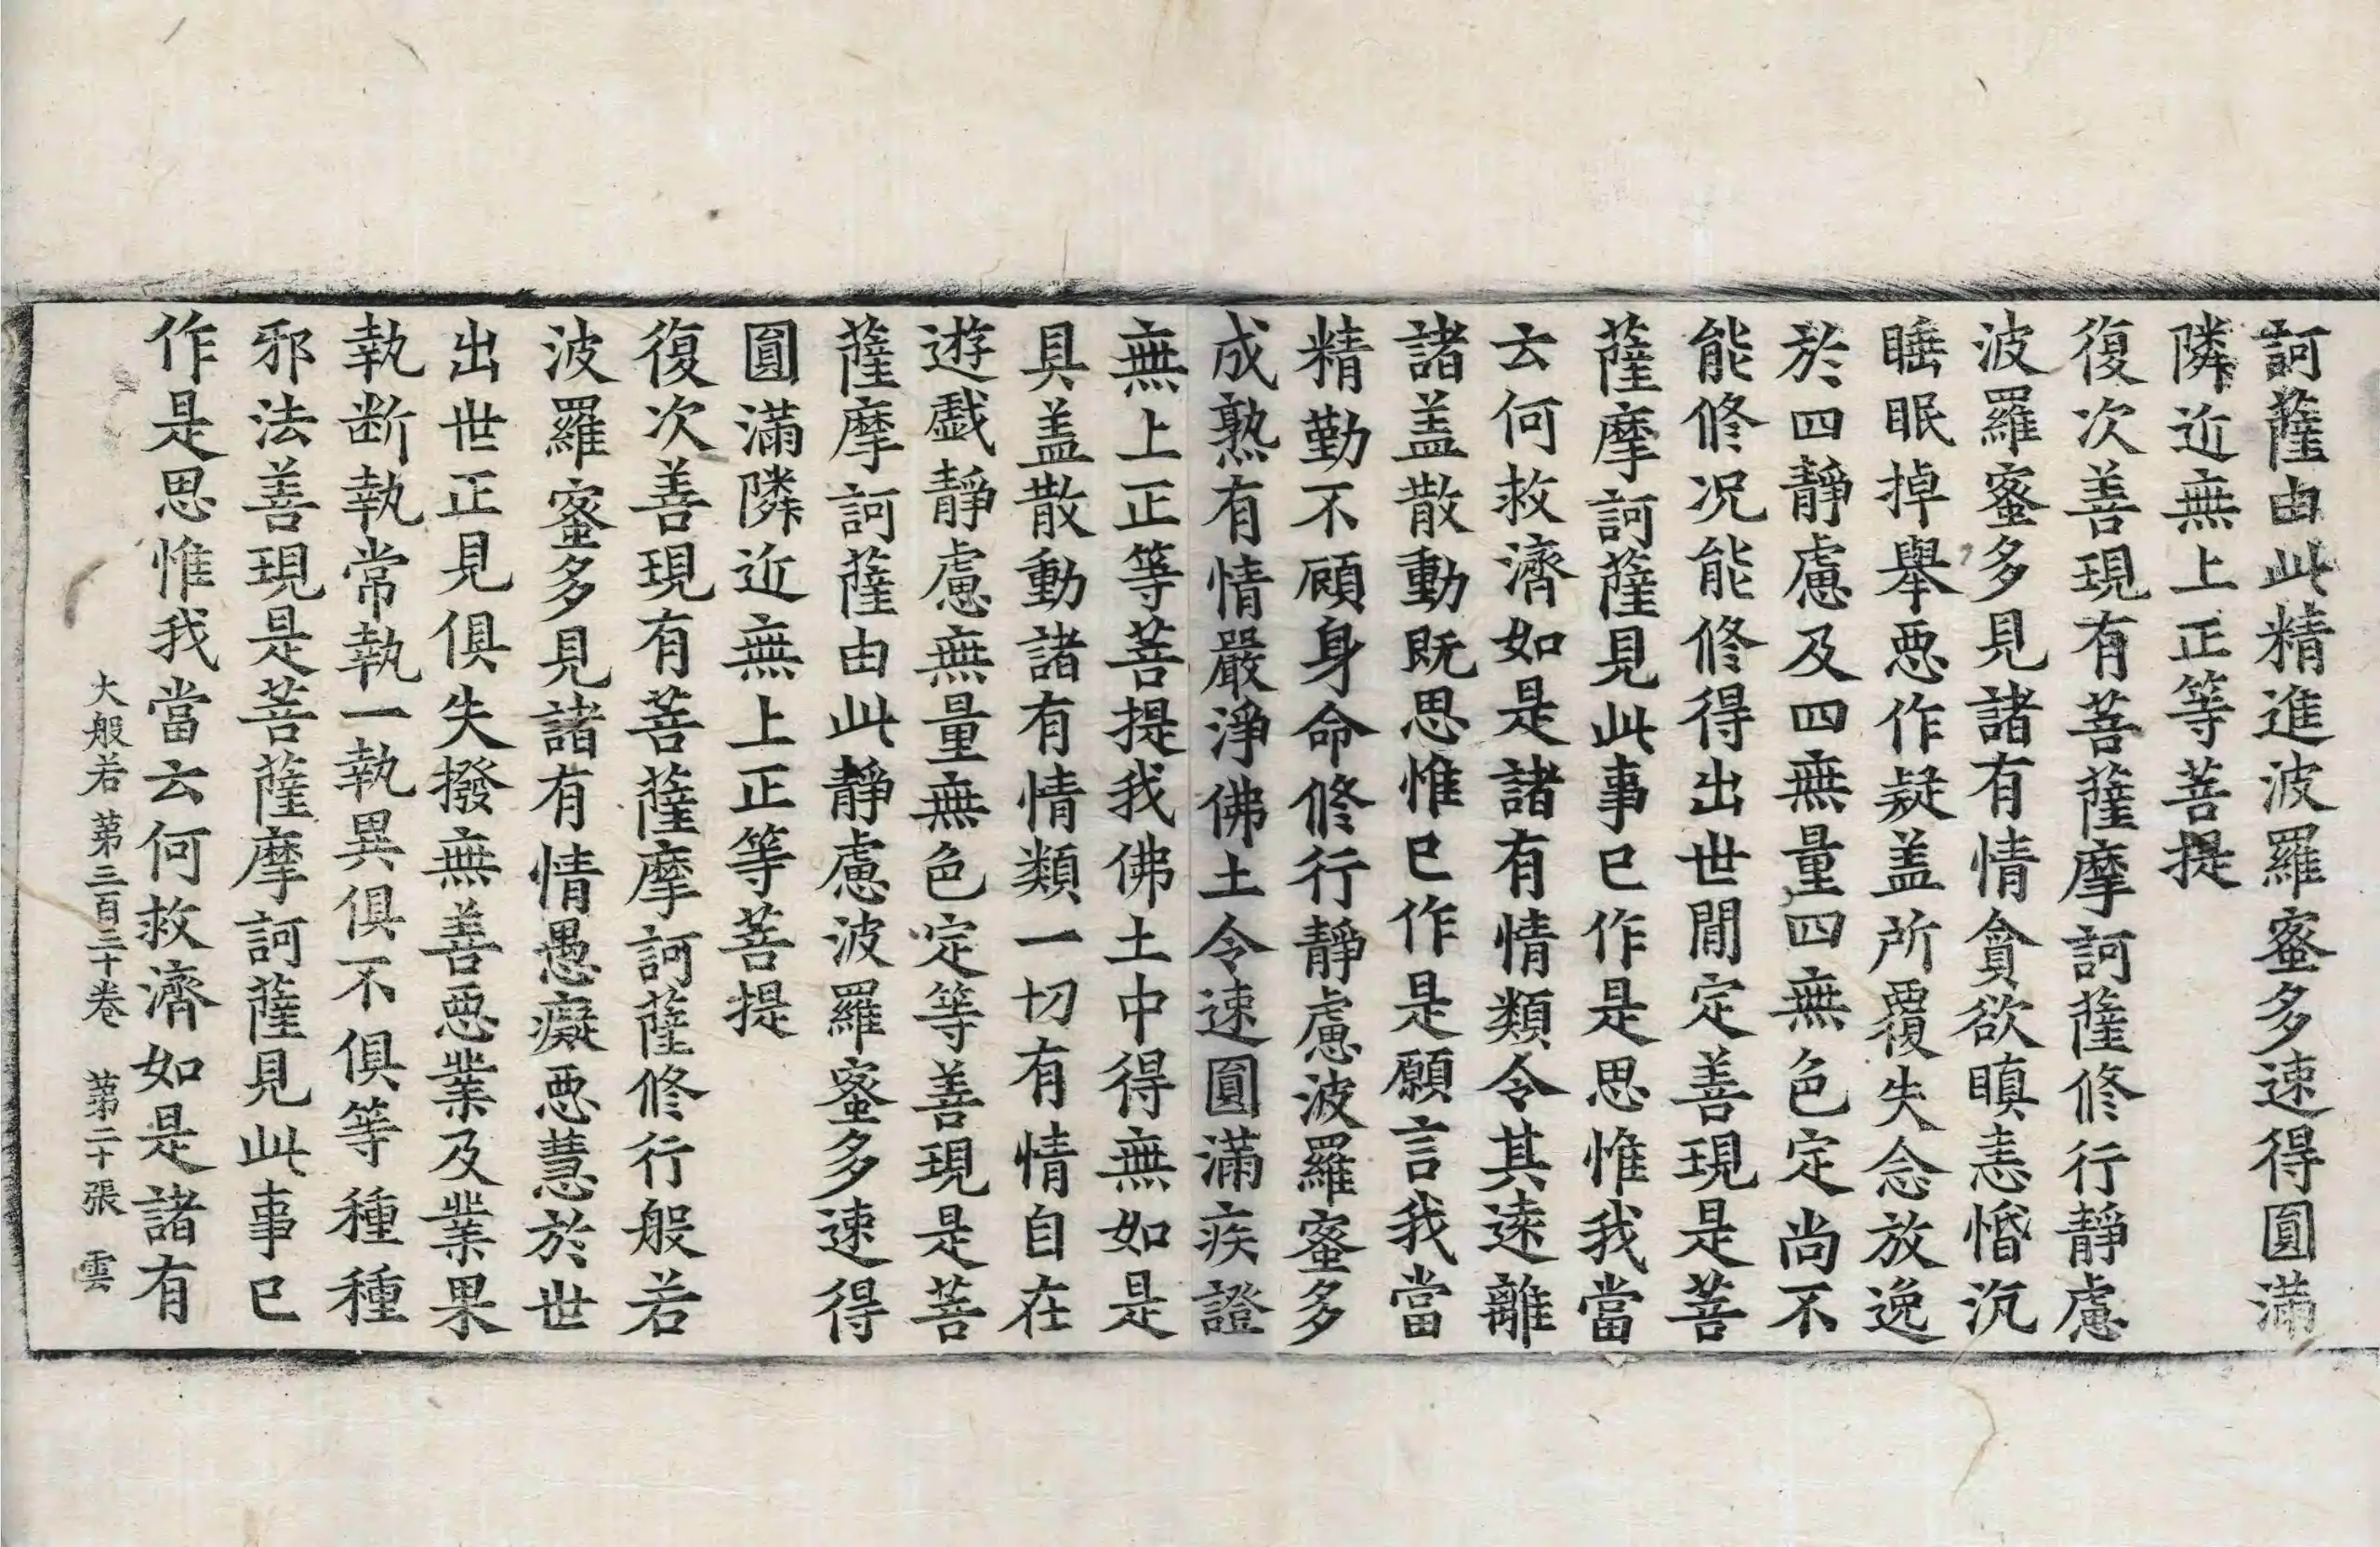 訶薩由此精進波羅蜜多速得圓滿
隣近無上正等菩提
復次善現有菩薩摩訶薩修行靜慮
波羅蜜多見諸有情貪欲瞋恚惛沉
睡眠掉舉惡作疑盖所覆失念放逸
於四靜慮及四無量四無色定尚不
能修况能修得出世間定善現是菩
薩摩訶薩見此事已作是思惟我當
云何救濟如是諸有情類令其遠離
諸盖散動既思惟已作是願言我當
精勤不顧身命修行靜慮波羅蜜多
成熟有情嚴淨佛土令速圓滿疾證
無上正等菩提我佛土中得無如是
具盖散動諸有情類一切有情自在
遊戲靜慮無量無色定等善現是菩
薩摩訶薩由此靜慮波羅蜜多速得
圓滿隣近無上正等菩提
復次善現有菩薩摩訶薩修行般若
波羅蜜多見諸有情愚癡惡慧於世
出世正見俱失撥無善惡業及業果
執断執常執一執異俱不俱等種種
邪法善現是菩薩摩訶薩見此事已
作是思惟我當云何救濟如是諸有
大般若第三百三十卷 第二十張 雲